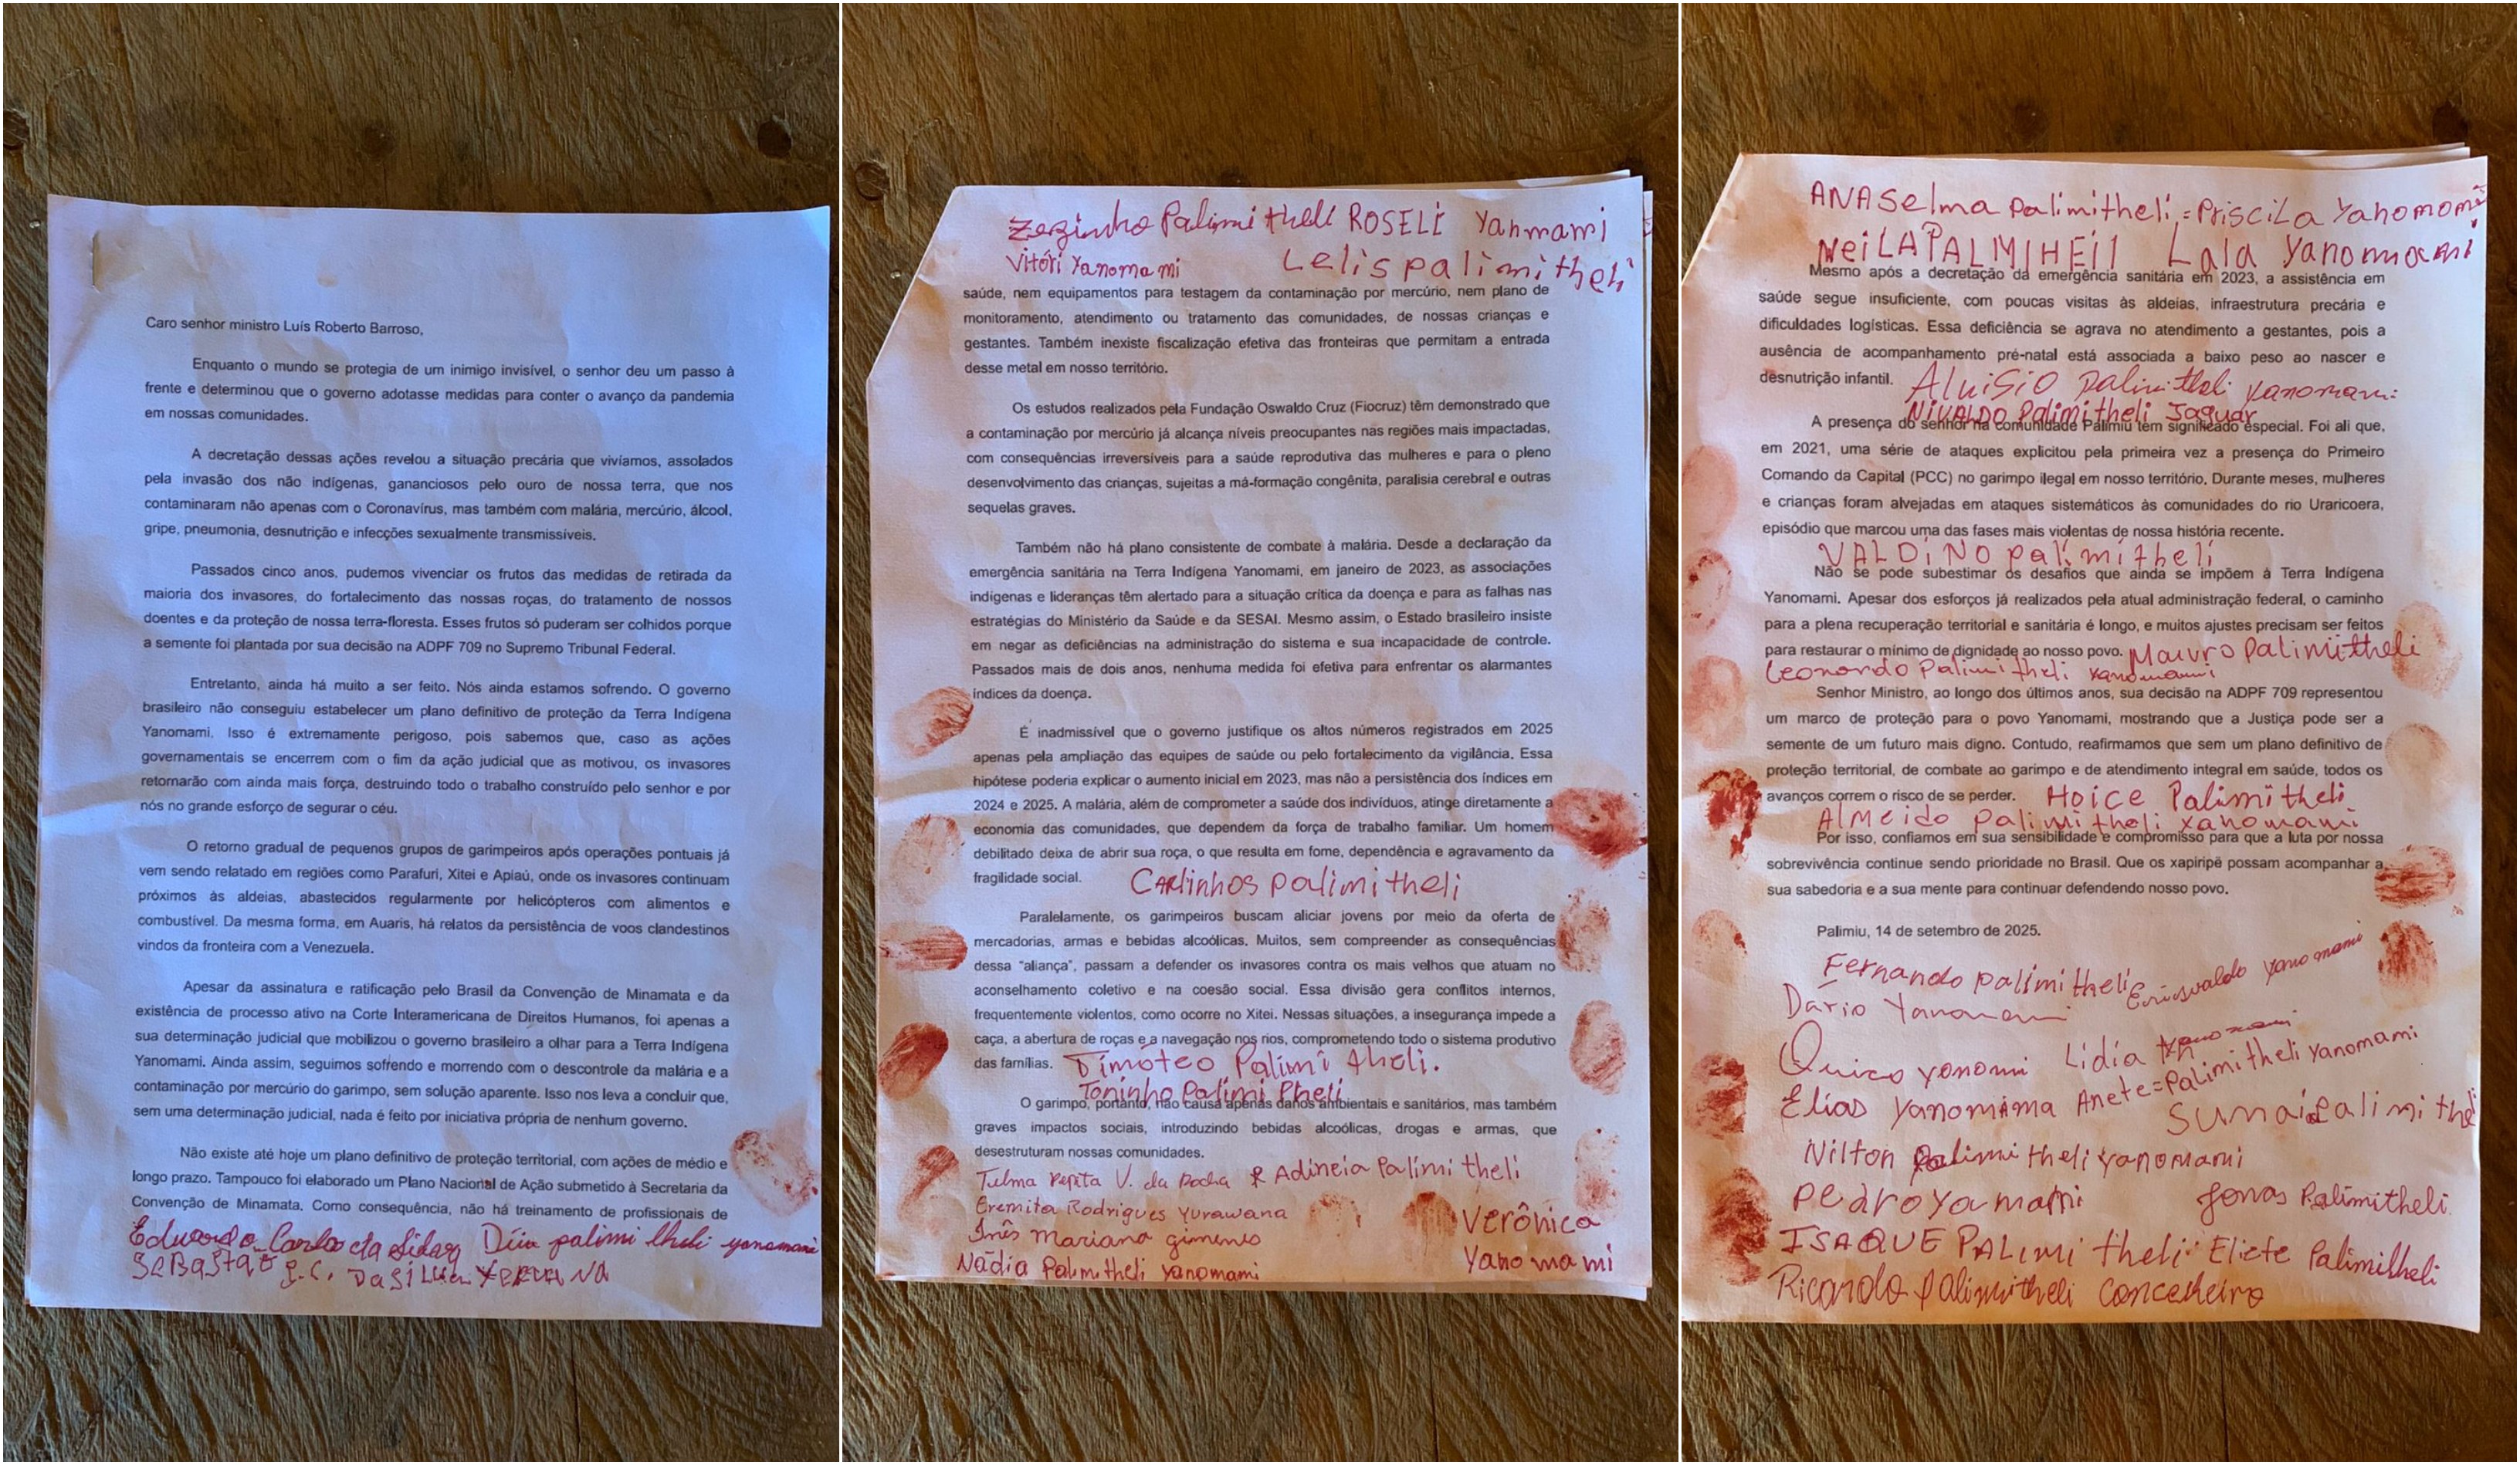 Caro senhor ministro Luís Roberto Barroso,
Enquanto o mundo se protegia de um inimigo invisível, o senhor deu um passo à
frente e determinou que o governo adotasse medidas para conter o avanço da pandemia
em nossas comunidades.
A decretação dessas ações revelou a situação precária que vivíamos, assolados
pela invasão dos não indígenas, gananciosos pelo ouro de nossa terra, que nos
contaminaram não apenas com o Coronavírus, mas também com malária, mercúrio, álcool,
gripe, pneumonia, desnutrição e infecções sexualmente transmissíveis.
Passados cinco anos, pudemos vivenciar os frutos das medidas de retirada da
maioria dos invasores, do fortalecimento das nossas roças, do tratamento de nossos
doentes e da proteção de nossa terra-floresta. Esses frutos só puderam ser colhidos porque
a semente foi plantada por sua decisão na ADPF 709 no Supremo Tribunal Federal.
Entretanto, ainda há muito a ser feito. Nós ainda estamos sofrendo. O governo
brasileiro não conseguiu estabelecer um plano definitivo de proteção da Terra Indígena
Yanomami. Isso é extremamente perigoso, pois sabemos que, caso as ações
governamentais se encerrem com o fim da ação judicial que as motivou, os invasores
retornarão com ainda mais força, destruindo todo o trabalho construído pelo senhor e por
nós no grande esforço de segurar o céu.
O retorno gradual de pequenos grupos de garimpeiros após operações pontuais já
vem sendo relatado em regiões como Parafuri, Xitei e Apiaú, onde os invasores continuam
próximos às aldeias, abastecidos regularmente por helicópteros com alimentos e
combustível. Da mesma forma, em Auaris, há relatos da persistência de voos clandestinos
vindos da fronteira com a Venezuela.
Apesar da assinatura e ratificação pelo Brasil da Convenção de Minamata e da
existência de processo ativo na Corte Interamericana de Direitos Humanos, foi apenas a
sua determinação judicial que mobilizou o governo brasileiro a olhar para a Terra Indígena
Yanomami. Ainda assim, seguimos sofrendo e morrendo com o descontrole da malária e a
contaminação por mercúrio do garimpo, sem solução aparente. Isso nos leva a concluir que,
sem uma determinação judicial, nada é feito por iniciativa própria de nenhum governo.
Não existe até hoje um plano definitivo de proteção territorial, com ações de médio e
longo prazo. Tampouco foi elaborado um Plano Nacional de Ação submetido à Secretaria da
Convenção de Minamata. Como consequência, não há treinamento de profissionais de
Eduardo Carlos da palimi theli yanomami
Zezinho Palimi theli ROSELI Yanmami
Vitóri Yanomami Lelis palimi theli
saúde, nem equipamentos para testagem da contaminação por mercúrio, nem plano de
monitoramento, atendimento ou tratamento das comunidades, de nossas crianças e
gestantes. Também inexiste fiscalização efetiva das fronteiras que permitam a entrada
desse metal em nosso território.
Os estudos realizados pela Fundação Oswaldo Cruz (Fiocruz) têm demonstrado que
a contaminação por mercúrio já alcança níveis preocupantes nas regiões mais impactadas,
com consequências irreversíveis para a saúde reprodutiva das mulheres e para o pleno
desenvolvimento das crianças, sujeitas a má-formação congênita, paralisia cerebral e outras
sequelas graves.
Também não há plano consistente de combate à malária. Desde a declaração da
emergência sanitária na Terra Indígena Yanomami, em janeiro de 2023, as associações
indígenas e lideranças têm alertado para a situação crítica da doença e para as falhas nas
estratégias do Ministério da Saúde e da SESAI. Mesmo assim, o Estado brasileiro insiste
em negar as deficiências na administração do sistema e sua incapacidade de controle.
Passados mais de dois anos, nenhuma medida foi efetiva para enfrentar os alarmantes
índices da doença.
É inadmissível que o governo justifique os altos números registrados em 2025
apenas pela ampliação das equipes de saúde ou pelo fortalecimento da vigilância. Essa
hipótese poderia explicar o aumento inicial em 2023, mas não a persistência dos índices em
2024 e 2025. A malária, além de comprometer a saúde dos indivíduos, atinge diretamente a
economia das comunidades, que dependem da força de trabalho familiar. Um homem
debilitado deixa de abrir sua roça, o que resulta em fome, dependência e agravamento da
fragilidade social. Carlinhos palimi theli
Paralelamente, os garimpeiros buscam aliciar jovens por meio da oferta de
mercadorias, armas e bebidas alcoólicas. Muitos, sem compreender as consequências
dessa "aliança", passam a defender os invasores contra os mais velhos que atuam no
aconselhamento coletivo e na coesão social. Essa divisão gera conflitos internos,
frequentemente violentos, como ocorre no Xitei. Nessas situações, a insegurança impede a
caça, a abertura de roças e a navegação nos rios, comprometendo todo o sistema produtivo
das famílias. Timóteo Palimi theli.
Toninho Palimi Pheli
O garimpo, portanto, não causa apenas danos ambientais e sanitários, mas também
graves impactos sociais, introduzindo bebidas alcoólicas, drogas e armas, que
desestruturam nossas comunidades.
Telma V. da Rocha Adineia Palimi theli
Eremita Rodrigues Yurawana
Inês Mariana gimenes Verônica
Nádia Palimitheli Yanomami Yanomami
ANASelma palimitheli = Priscila Yanomami
NeiLA PALMIHEIl Lala Yanomami
Mesmo após a decretação da emergência sanitária em 2023, a assistência em
saúde segue insuficiente, com poucas visitas às aldeias, infraestrutura precária e
dificuldades logísticas. Essa deficiência se agrava no atendimento a gestantes, pois a
ausência de acompanhamento pré-natal está associada a baixo peso ao nascer e
desnutrição infantil. Aluisio palimi theli yanomami
NIVALDO Palimitheli Jaguar
A presença do senhor na comunidade Palimiu tem significado especial. Foi ali que,
em 2021, uma série de ataques explicitou pela primeira vez a presença do Primeiro
Comando da Capital (PCC) no garimpo ilegal em nosso território. Durante meses, mulheres
e crianças foram alvejadas em ataques sistemáticos às comunidades do rio Uraricoera,
episódio que marcou uma das fases mais violentas de nossa história recente.
VALDINO palimi theli
Não se pode subestimar os desafios que ainda se impõem à Terra Indígena
Yanomami. Apesar dos esforços já realizados pela atual administração federal, o caminho
para a plena recuperação territorial e sanitária é longo, e muitos ajustes precisam ser feitos
para restaurar o mínimo de dignidade ao nosso povo. Mauro Palimitheli
Leonardo Palimi theli yanomami
Senhor Ministro, ao longo dos últimos anos, sua decisão na ADPF 709 representou
um marco de proteção para o povo Yanomami, mostrando que a Justiça pode ser a
semente de um futuro mais digno. Contudo, reafirmamos que sem um plano definitivo de
proteção territorial, de combate ao garimpo e de atendimento integral em saúde, todos os
avanços correm o risco de se perder. Hoice Palimi theli
Almeido palimi theli xanomami
Por isso, confiamos em sua sensibilidade e compromisso para que a luta por nossa
sobrevivência continue sendo prioridade no Brasil. Que os xapiripë possam acompanhar a
sua sabedoria e a sua mente para continuar defendendo nosso povo.
Palimiu, 14 de setembro de 2025.
Fernando palimi theli
Dário Yanomami yanomami
Quico yonomi Lidia yanomami
Elias Yanomama Anete=Palimitheli Yanomami
Sunai Palimi the
Nilton palimi theli yanomami
Pedro Yamami Jonas Palimitheli.
ISAQUE PALIMI theli Eliete Palimitheli
Ricardo palimitheli conceheiro